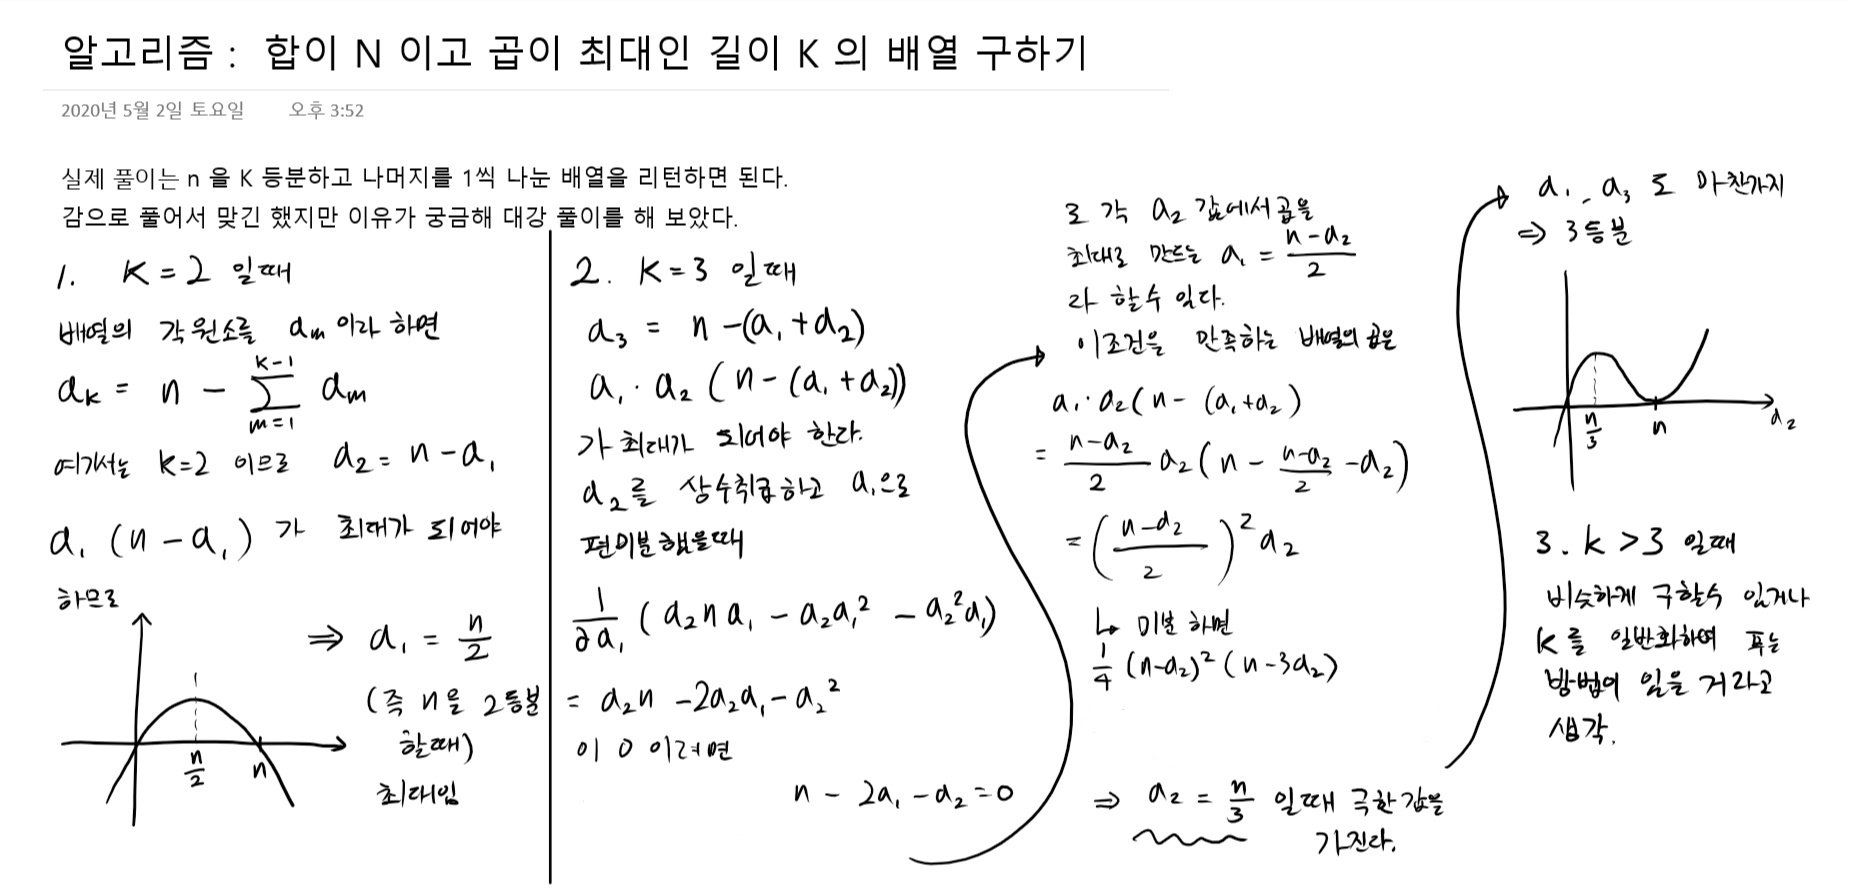 알고리즘 : 합이 N 이고 곱이 최대인 길이 K 의 배열 구하기
2020년 5월 2일 토요일 오후 3:52
실제 풀이는 n 을 K 등분하고 나머지를 1씩 나눈 배열을 리턴하면 된다.
감으로 풀어서 맞긴 했지만 이유가 궁금해 대강 풀이를 해 보았다.
1. K = 2 일때
배열의 각 원소를 aₘ 이라 하면
aₖ = n - ∑_{m=1}^{k-1} aₘ
여기서는 k=2 이므로 a₂ = n - a₁
a₁ (n - a₁) 가 최대가 되어야
하므로
⇒ a₁ = n/2
(즉 n을 2등분
할때)
최대임
n/2 n
2. K = 3 일때
a₃ = n - (a₁ + a₂)
a₁ · a₂ (n - (a₁ + a₂))
가 최대가 되어야 한다.
a₂를 상수취급하고 a₁으로
편미분 했을때
1/∂a₁ (a₂na₁ - a₂a₁² - a₂²a₁)
= a₂n - 2a₂a₁ - a₂²
이 0 이려면
n - 2a₁ - a₂ = 0
로 각 a₂ 값에서 곱을
최대로 만드는 a₁ = (n-a₂)/2
라 할수 있다.
이조건을 만족하는 배열의 곱은
a₁ · a₂(n - (a₁+a₂)
= (n-a₂)/2 a₂(n - (n-a₂)/2 - a₂)
= ((n-a₂)/2)² a₂
↳ 미분 하면
1/4 (n-a₂)² (n-3a₂)
⇒ a₂ = n/3 일때 극한값을
가진다.
a₁, a₃ 도 마찬가지
⇒ 3등분
n/3 n a₂
3. k > 3 일때
비슷하게 구할수 있거나
k를 일반화하여 푸는
방법이 있을 거라고
생각.